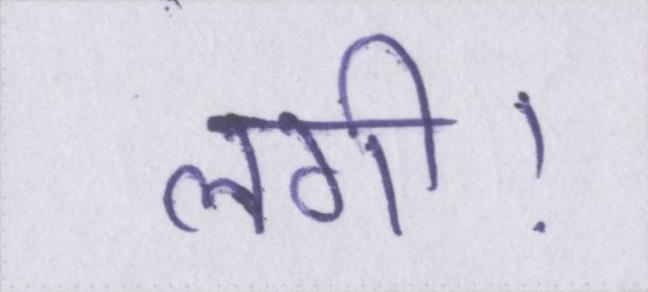 लगी!